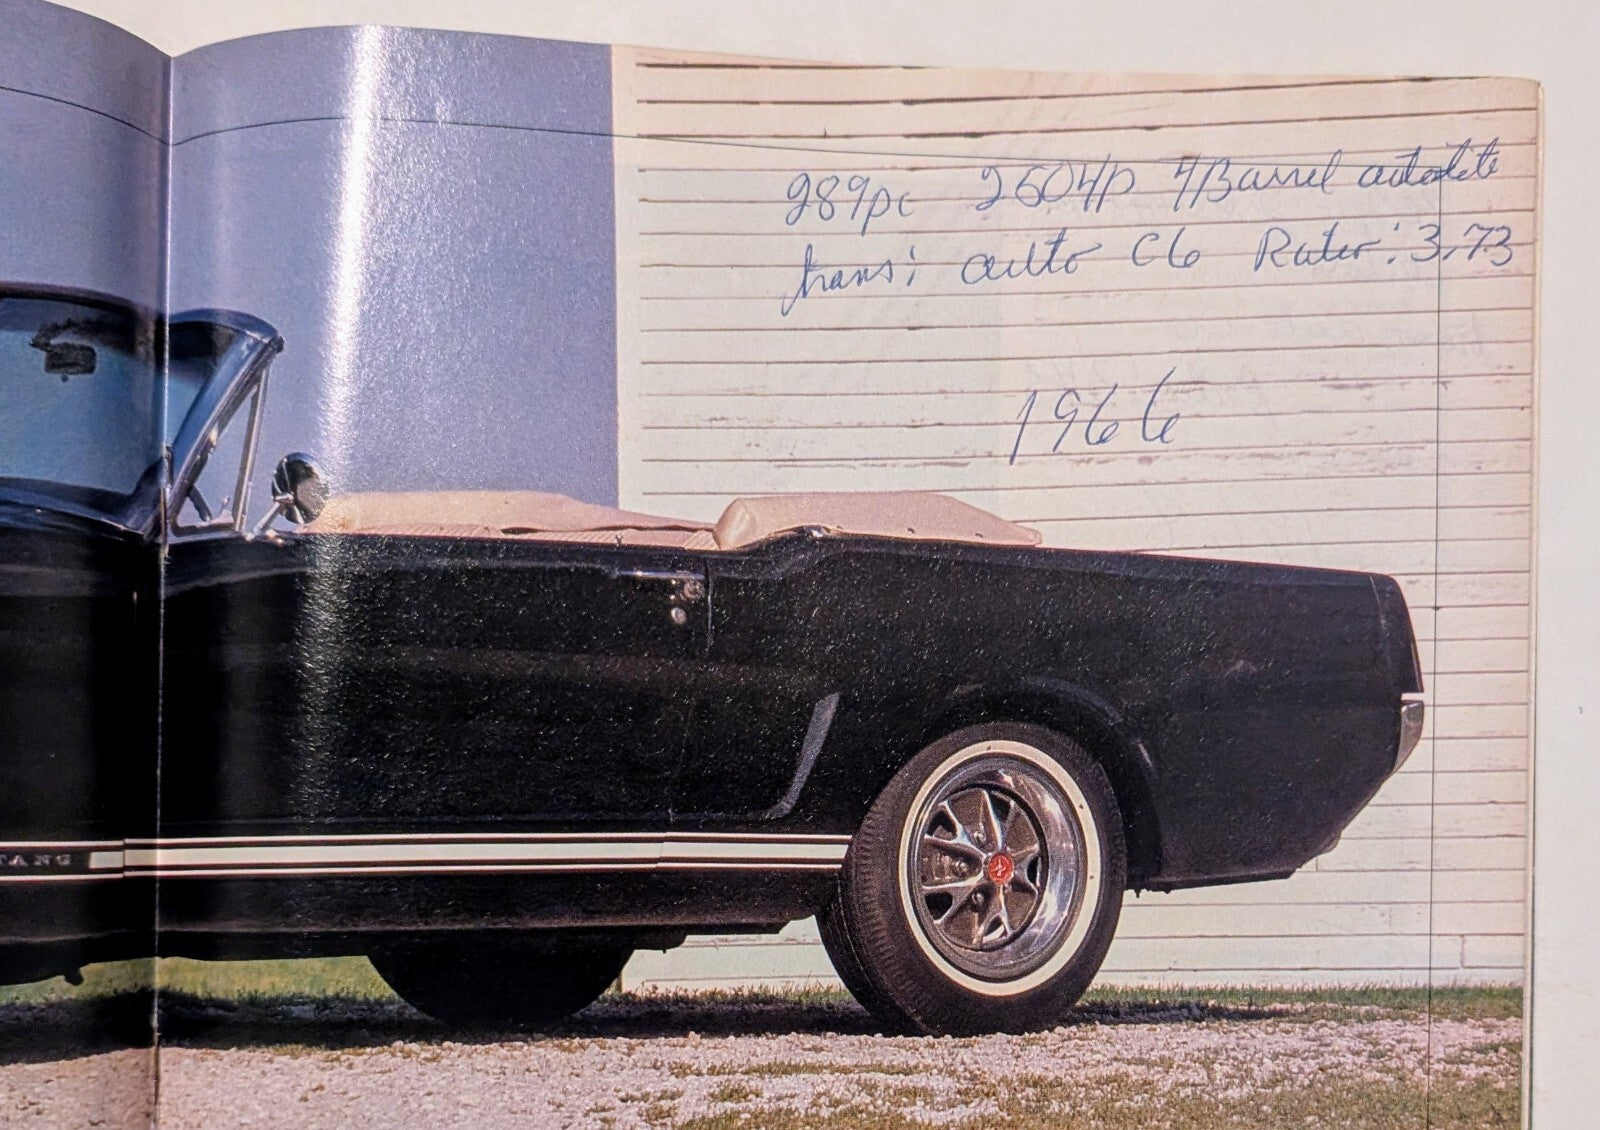 289pc 260HP 4Barrel autolite
trans: auto C6 Ratio: 3,73
1966
TANG